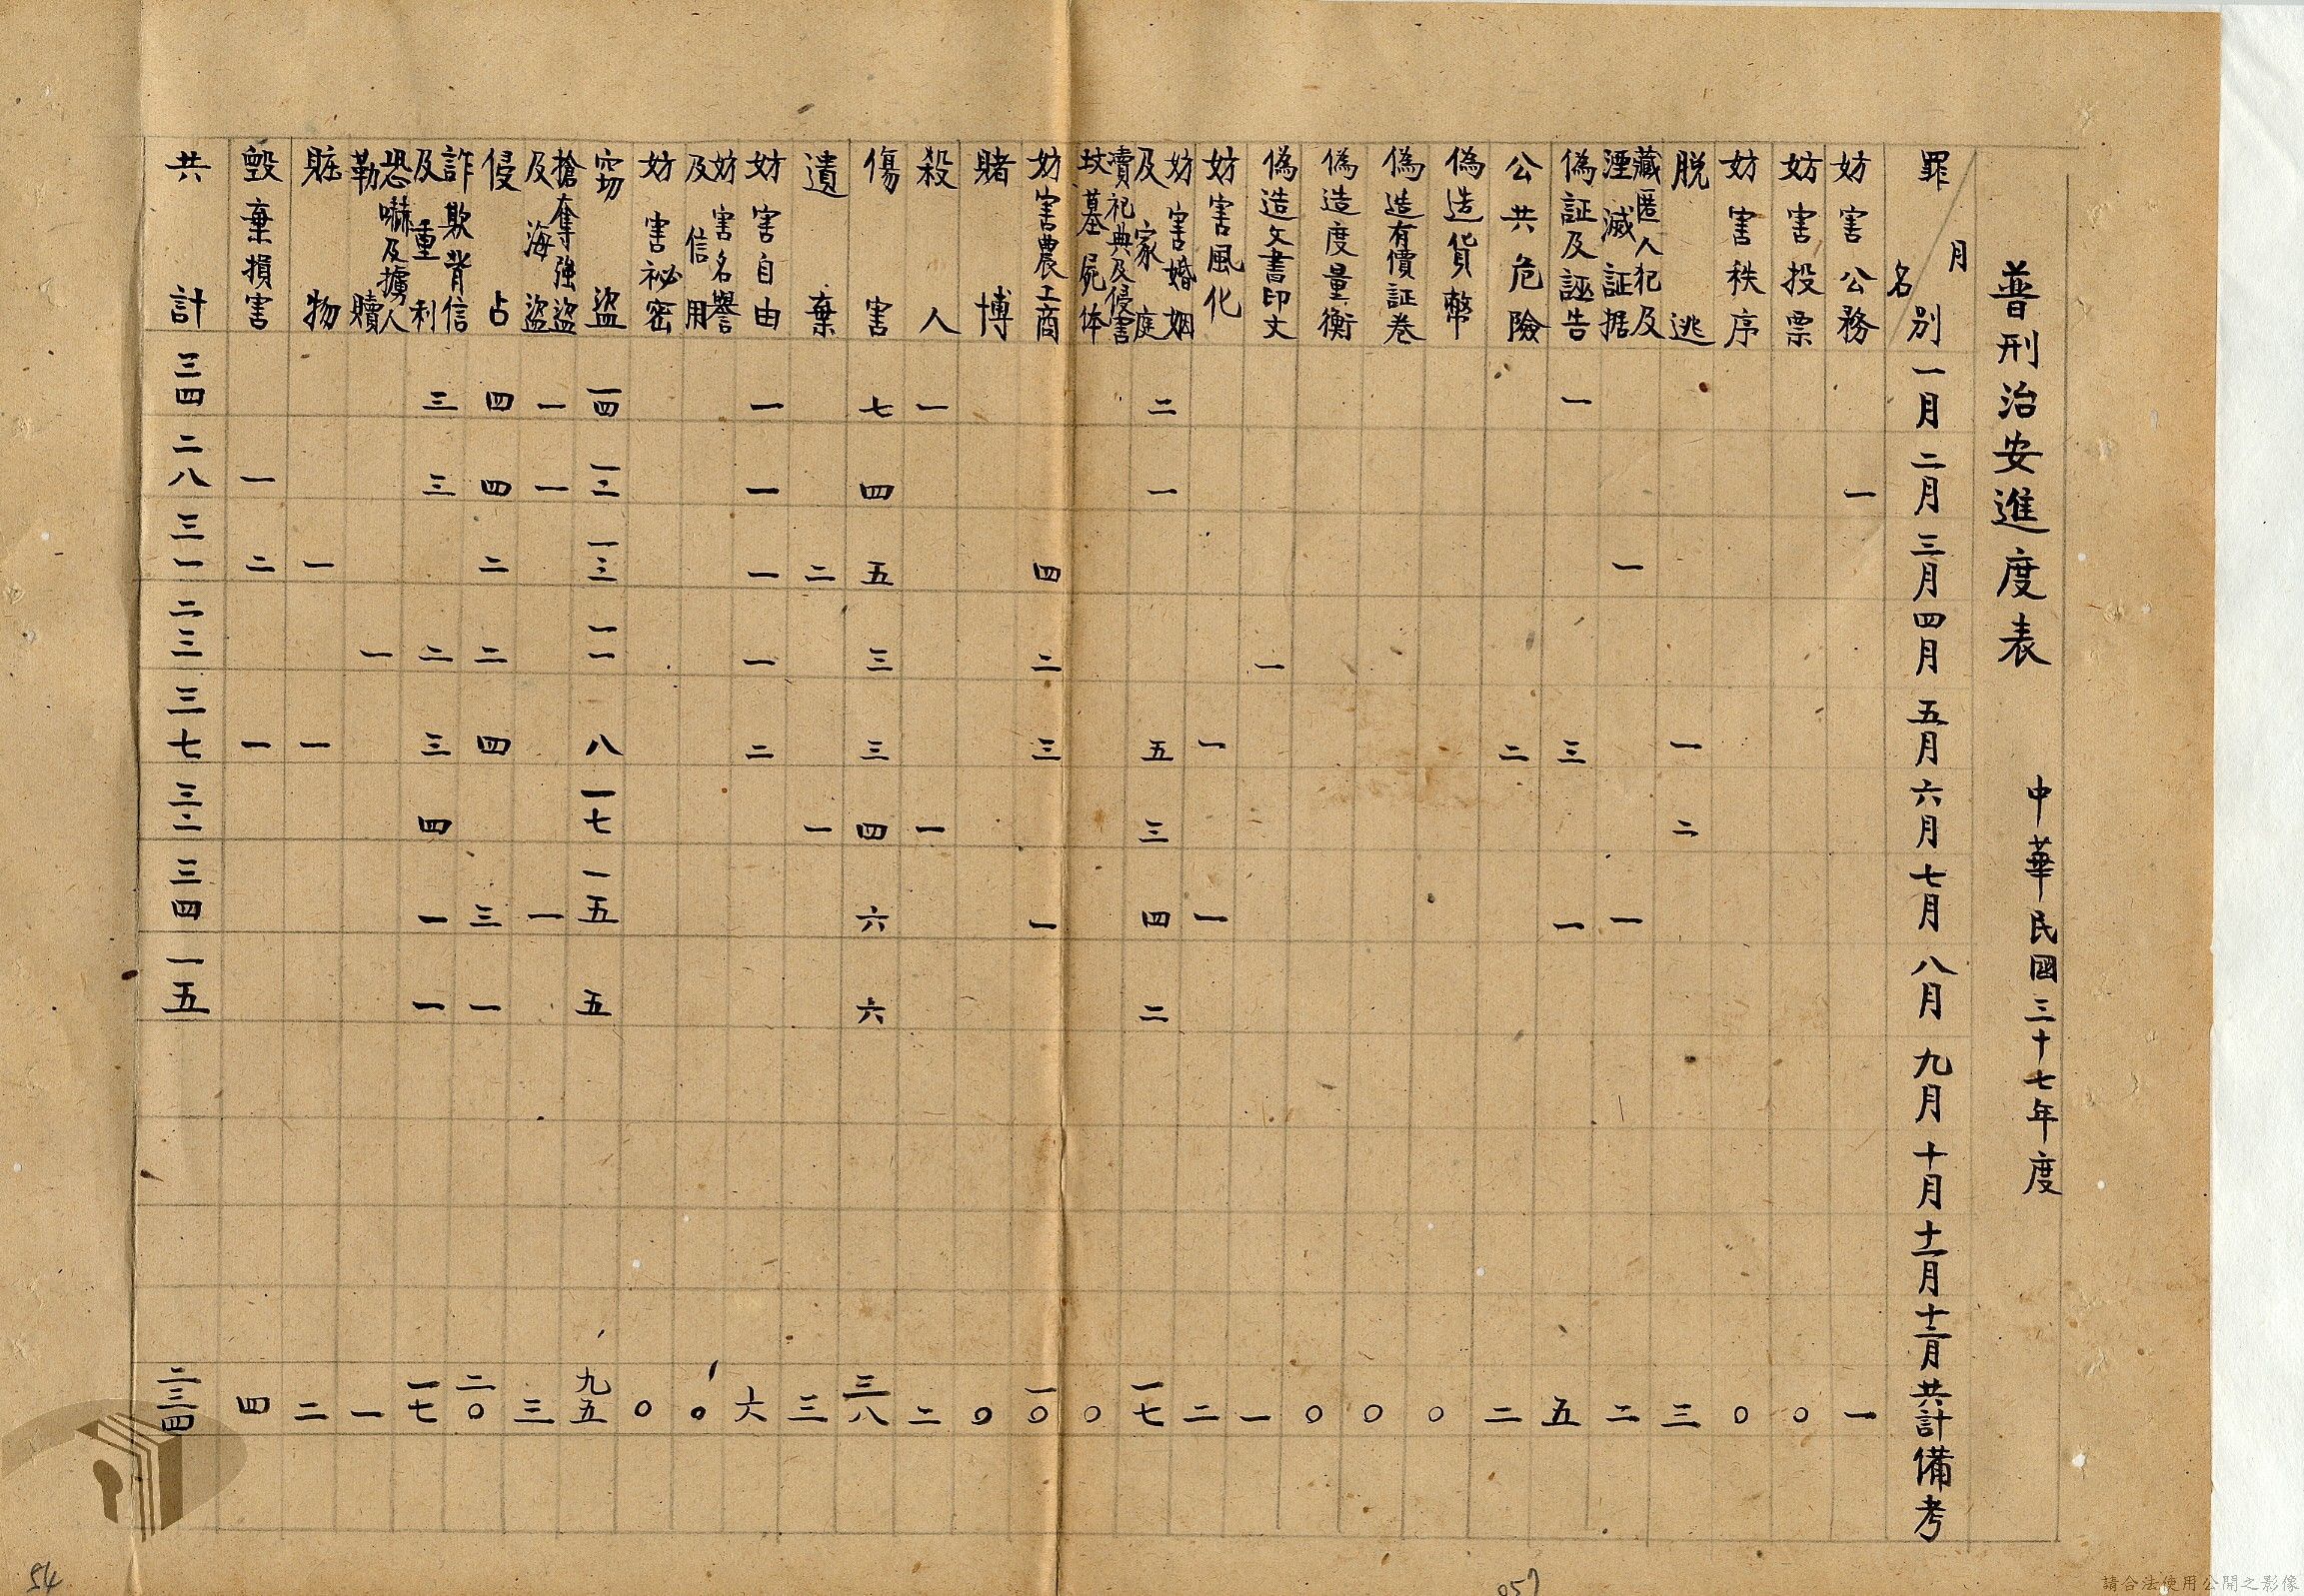 普刑治安進度表 中華民國三十七年度
月別 一月 二月 三月 四月 五月 六月 七月 八月 九月 十月 十一月 十二月 共計 備考
罪名
妨害公務 一 一
妨害投票 ○
妨害秩序 ○
脫逃 一 二 三
藏匿人犯及
湮滅証据 一 一 二
偽証及誣告 一 三 一 五
公共危險 二 二
偽造貨幣 ○
偽造有價証卷 ○
偽造度量衡 ○
偽造文書印文 一 一
妨害風化 一 一 二
妨害婚姻
及家庭 二 一 五 三 四 二 一七
瀆祀典及侵害
坟墓屍体 ○
妨害農工商 四 二 三 一 一○
賭博 ○
殺人 一 一 二
傷害 七 四 五 三 三 四 六 六 三八
遺棄 二 一 三
妨害自由 一 一 一 一 二 六
妨害名譽
及信用 ○
妨害祕密 ○
窃盜 一四 一二 一三 一一 八 一七 一五 五 九五
搶奪強盜
及海盜 一 一 一 三
侵占 四 四 二 二 四 三 一 二○
詐欺背信
及重利 三 三 二 三 四 一 一 一七
恐嚇及擄人
勒贖 一 一
賍物 一 一 二
毀棄損害 一 二 一 四
共計 三四 二八 三一 二三 三七 三二 三四 一五 二三四
54
057
請合法使用公開之影像